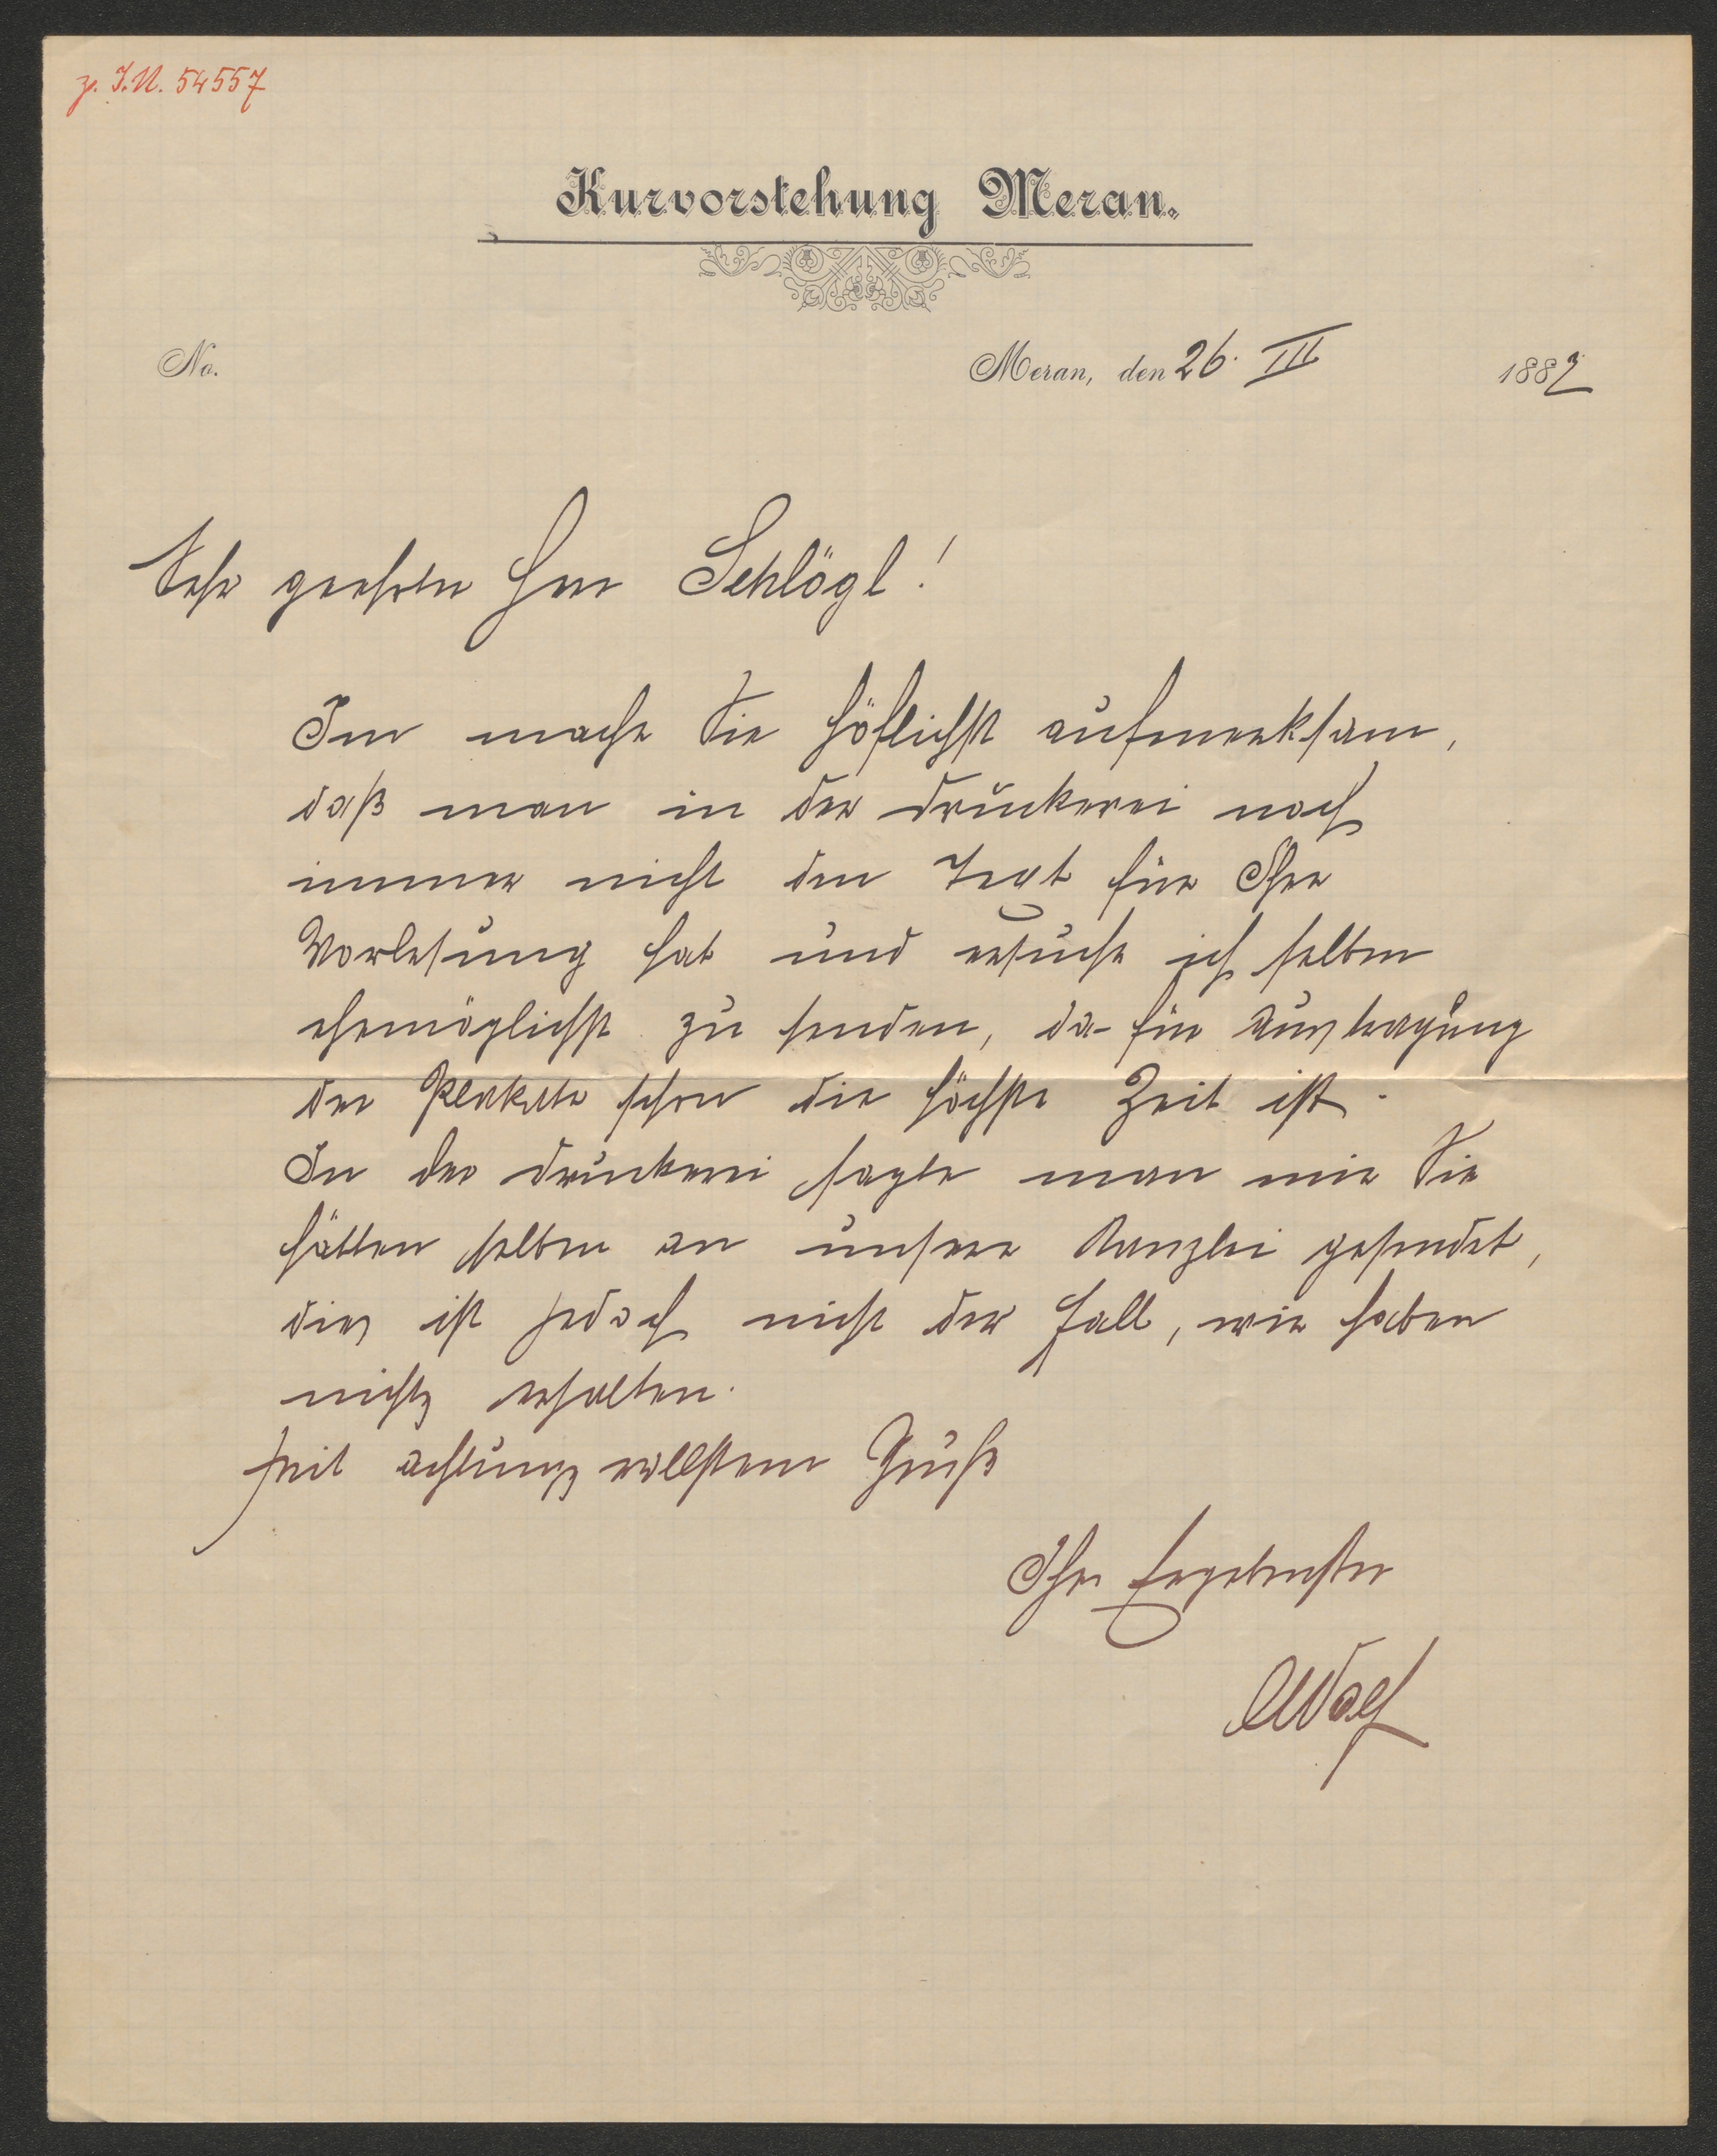 z. I.N. 54557
Kurvorstehung Meran.
No.
Meran, den 26. III 1889
Sehr geehrter Herr Schlögl!
mache Sie höflichst aufmerksam,
daß man in der Druckerei noch
immer nicht den Text für Ihre
Vorlesung hat und ersuche ich selben
ehemöglichst zu senden, da für Austragung
der Plakate schon die höchste Zeit ist.
In der Druckerei sagte man mir Sie
hätten selben an unsere Kanzlei gesendet,
dies ist jedoch nicht der Fall, wir haben
nichts erhalten.
Mit achtungsvollstem Gruße
Ihr Ergebenster